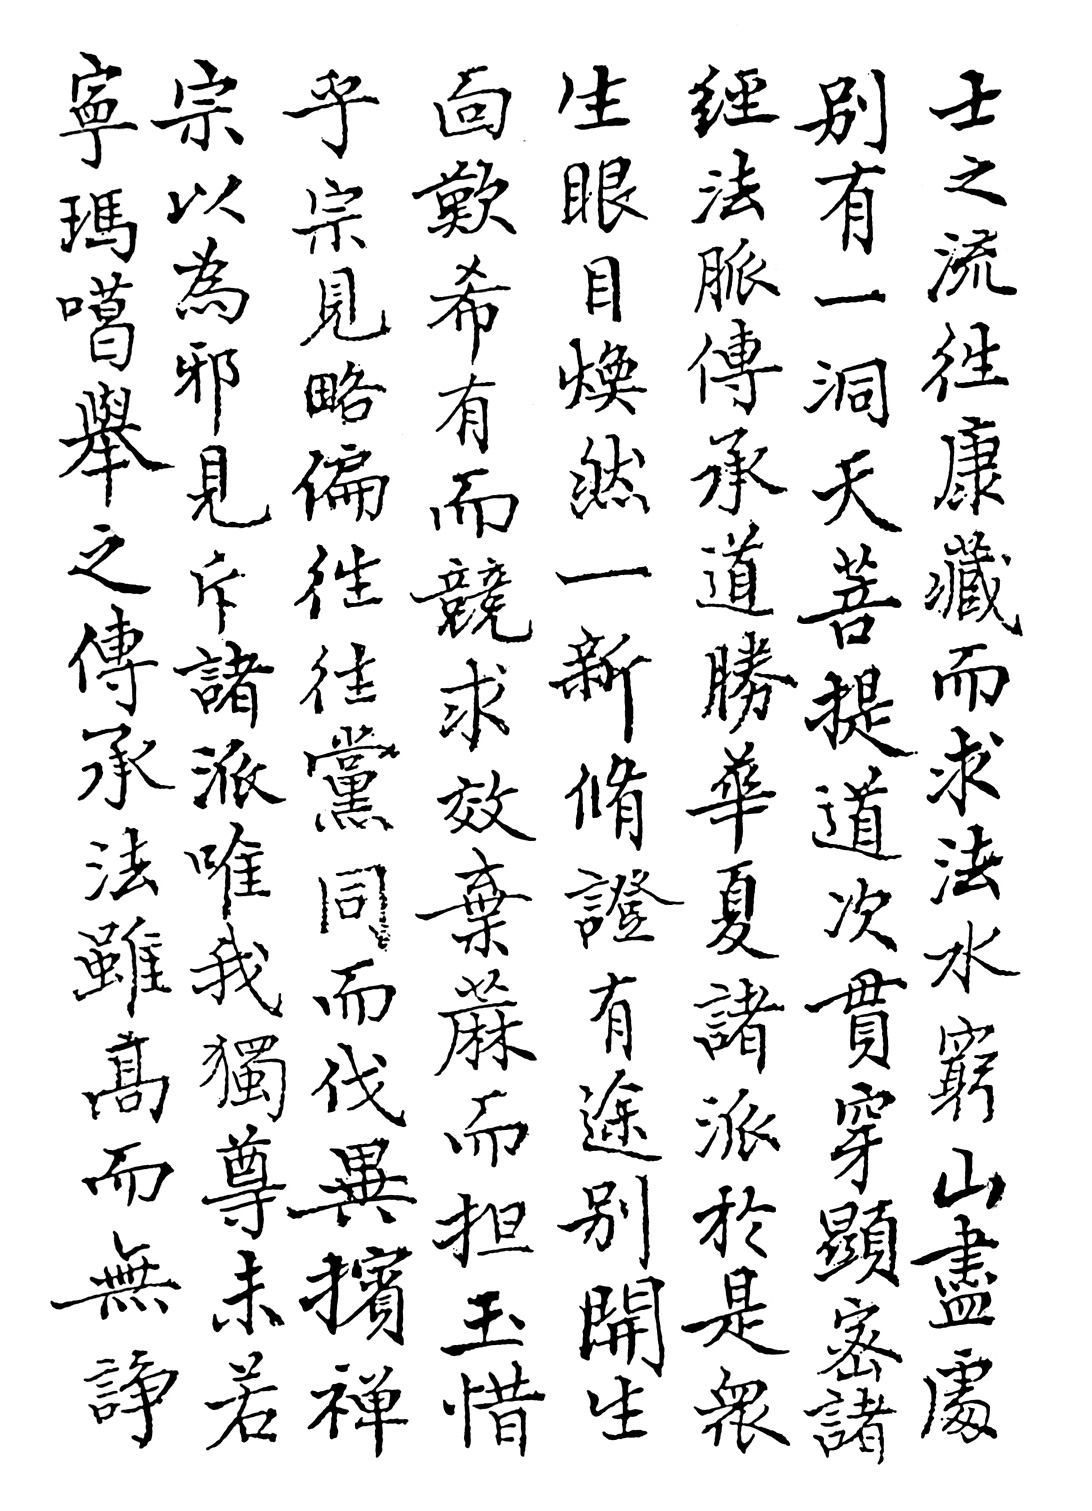 士之流往康藏而求法水窮山盡處
别有一洞天菩提道次貫穿顯密諸
經法脈傳承道勝華夏諸派於是衆
生眼目煥然一新脩證有途别開生
面歎希有而競求效棄蔴而担玉惜
乎宗見略偏往往黨同而伐異擯禅
宗以為邪見斥諸派唯我獨尊未若
寧瑪噶舉之傳承法雖高而無諍